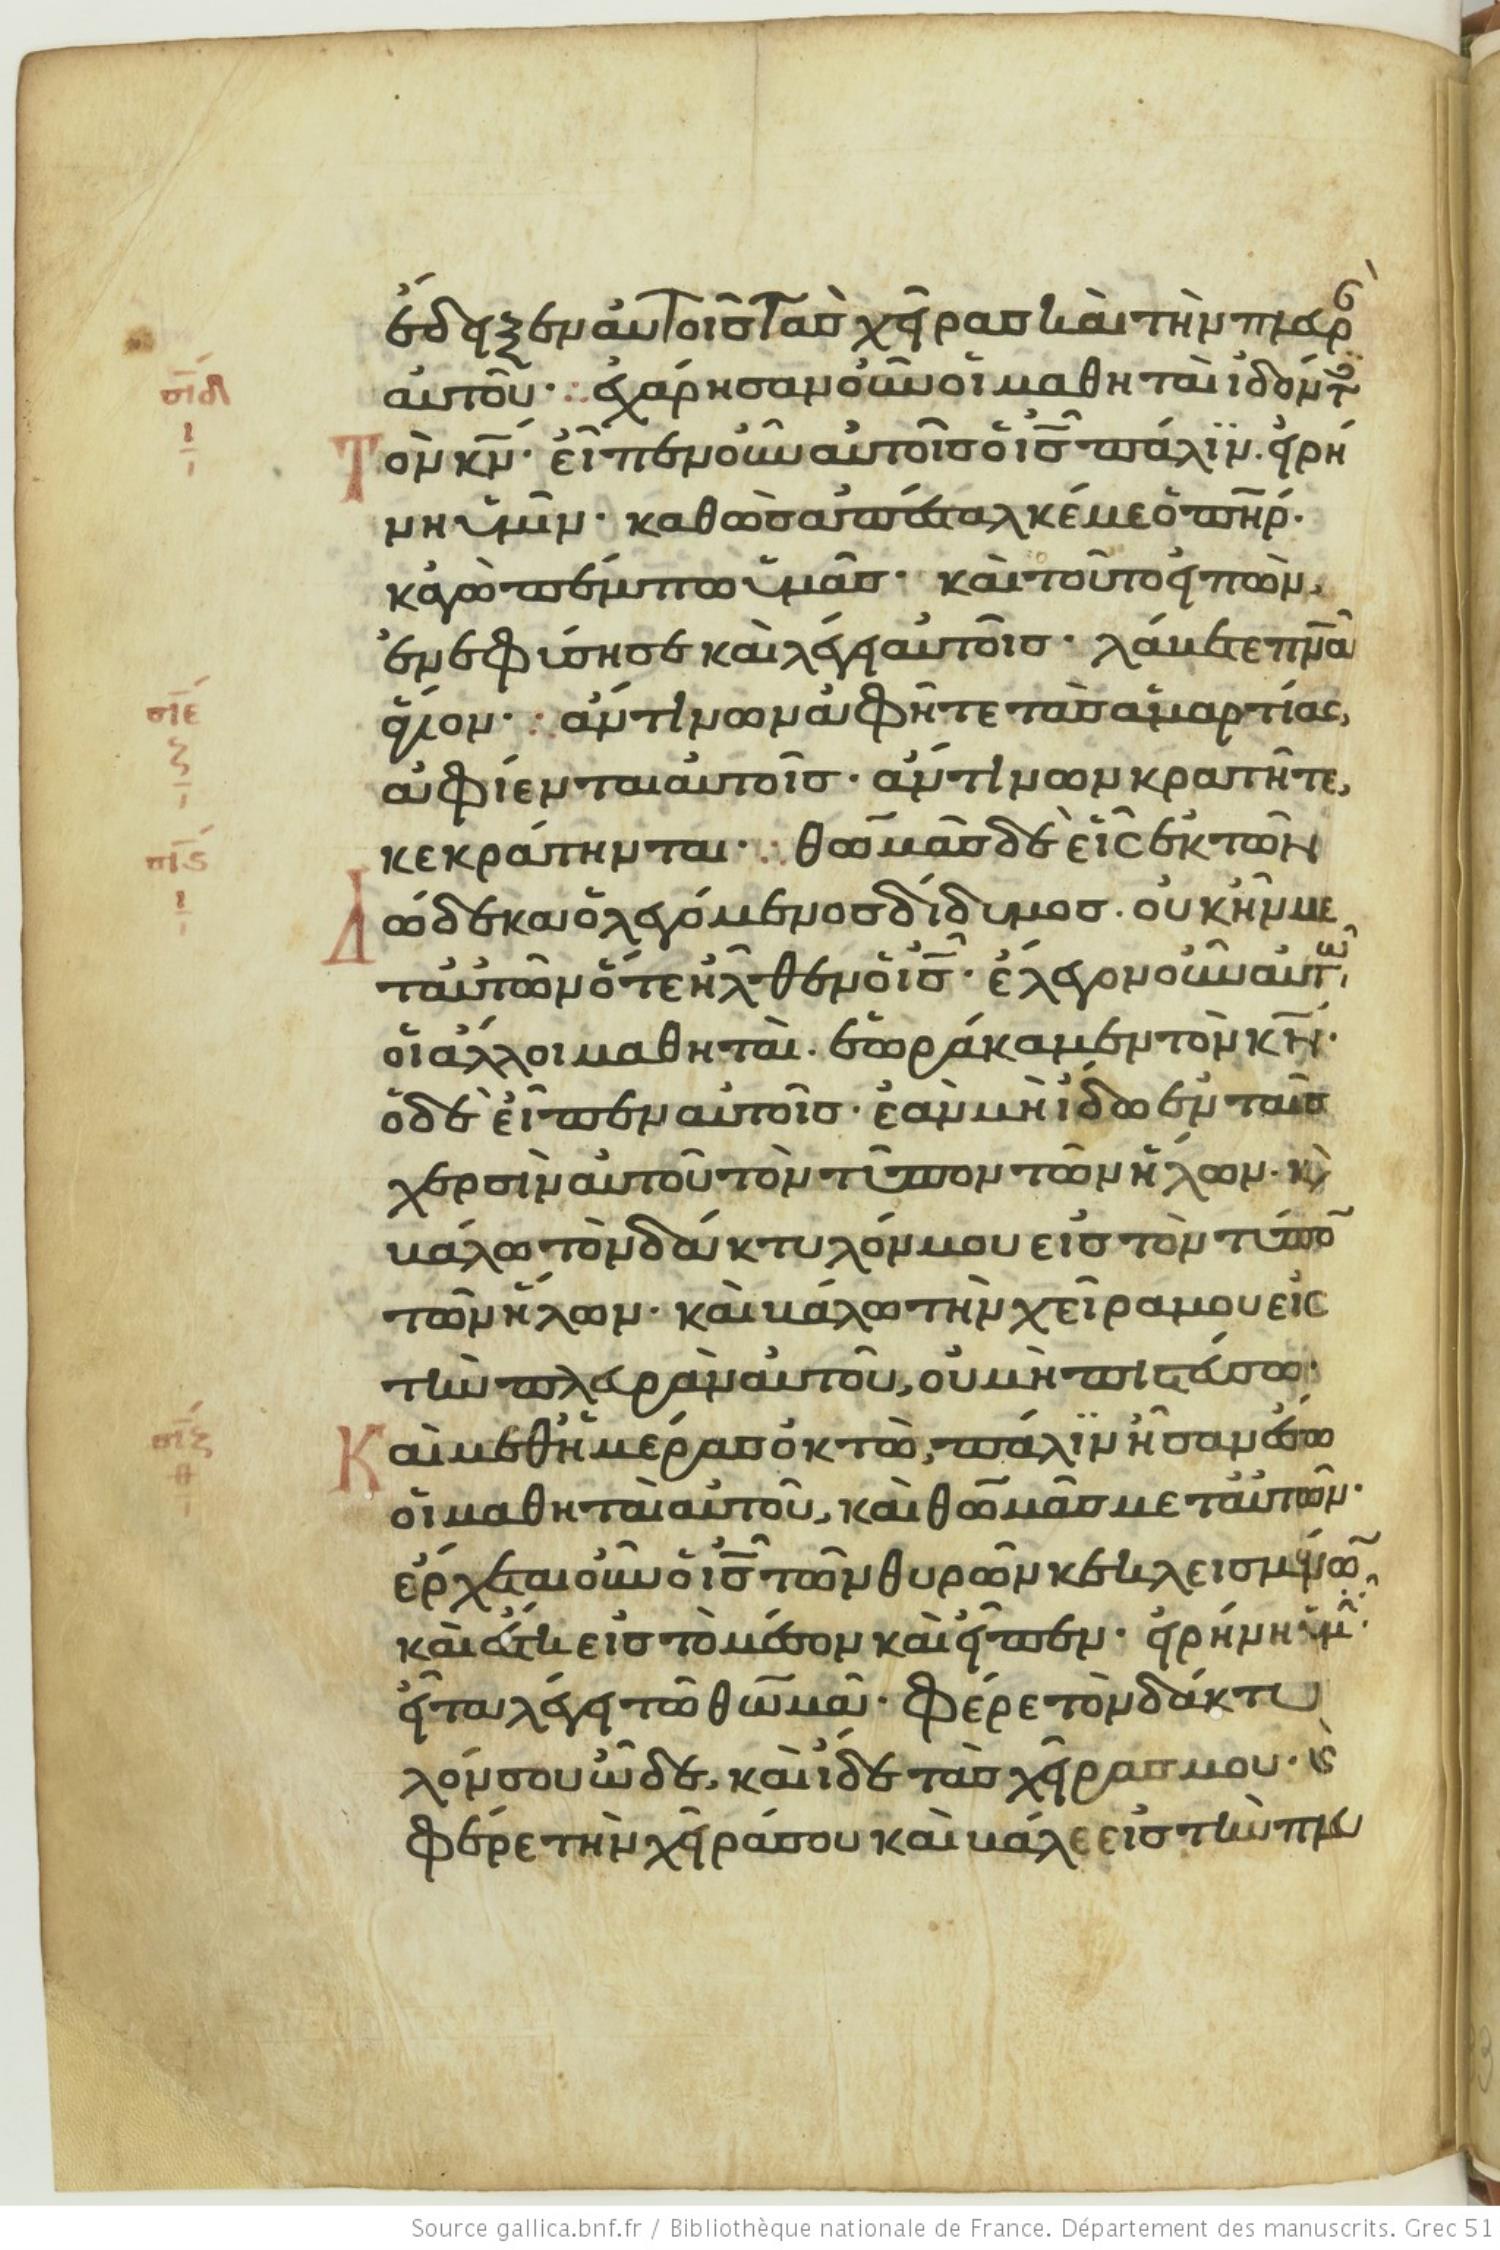 ἔδειξεν αὐτοῖς τὰς χεῖρας καὶ τὴν πλευρ
αὐτοῦ· ἐχάρησαν οὖν οἱ μαθηταὶ ἰδόντες
σιδ
ι
τὸν κν̄· εἶπεν οὖν αὐτοῖς ὁ ις̄ πάλϊν· εἰρή
νη ὑμῖν· καθὼς ἀπέσταλκέ με ὁ πηρ̄·
κἀγὼ πέμπω ὑμᾶς· καὶ τοῦτο εἰπὼν,
ἐνεφύσησε καὶ λέγει αὐτοῖς· λάβετε πνᾱ
σιε
ζ
ι
ἅγιον· ἄν τινων ἀφῆτε τὰς ἁμαρτίας,
ἀφίενται αὐτοῖς· ἄν τινων κρατῆτε,
σις
ι
κεκράτηνται· θωμᾶς δὲ εἷς ἐκ τῶν
δώδεκα ὁ λεγόμενος δίδυμος· οὐκ ἦν με
τ' αὐτῶν ὅτε ἦλθεν ὁ ις̄· ἔλεγον οὖν αὐτῶ
οἱ ἄλλοι μαθηταὶ· ἑωράκαμεν τὸν κν̄·
ὁ δὲ εἶπεν αὐτοῖς· ἐὰν μὴ ἴδω ἐν ταῖς
χερσὶν αὐτοῦ τὸν τύπον τῶν ἥλων· κ
βάλω τὸν δάκτυλόν μου εἰς τὸν τύπο
τῶν ἥλων· καὶ βάλω τὴν χεῖρα μου εἰς
τὴν πλευρὰν αὐτοῦ, οὐ μὴ πιστεύσω·
σιζ
καὶ μεθ' ἡμέρας ὀκτὼ, πάλϊν ἦσαν ἔσω
οἱ μαθηταὶ αὐτοῦ, καὶ θωμᾶς μετ' αὐτῶν·
ἔρχεται οὖν ὁ ις̄ τῶν θυρῶν κεκλεισμένω
καὶ ἔστη εἰς τὸ μέσον καὶ εἶπεν· εἰρήνη ὑμῖ·
εἶτα λέγει τῶ θωμᾶ· φέρε τὸν δάκτυ
λόν σου ὧδε, καὶ ἴδε τὰς χεῖρας μου· κ
φέρε τὴν χεῖρά σου καὶ βάλε εἰς τὴν πλευ
Source gallica.bnf.fr / Bibliothèque nationale de France. Département des manuscrits. Grec 51